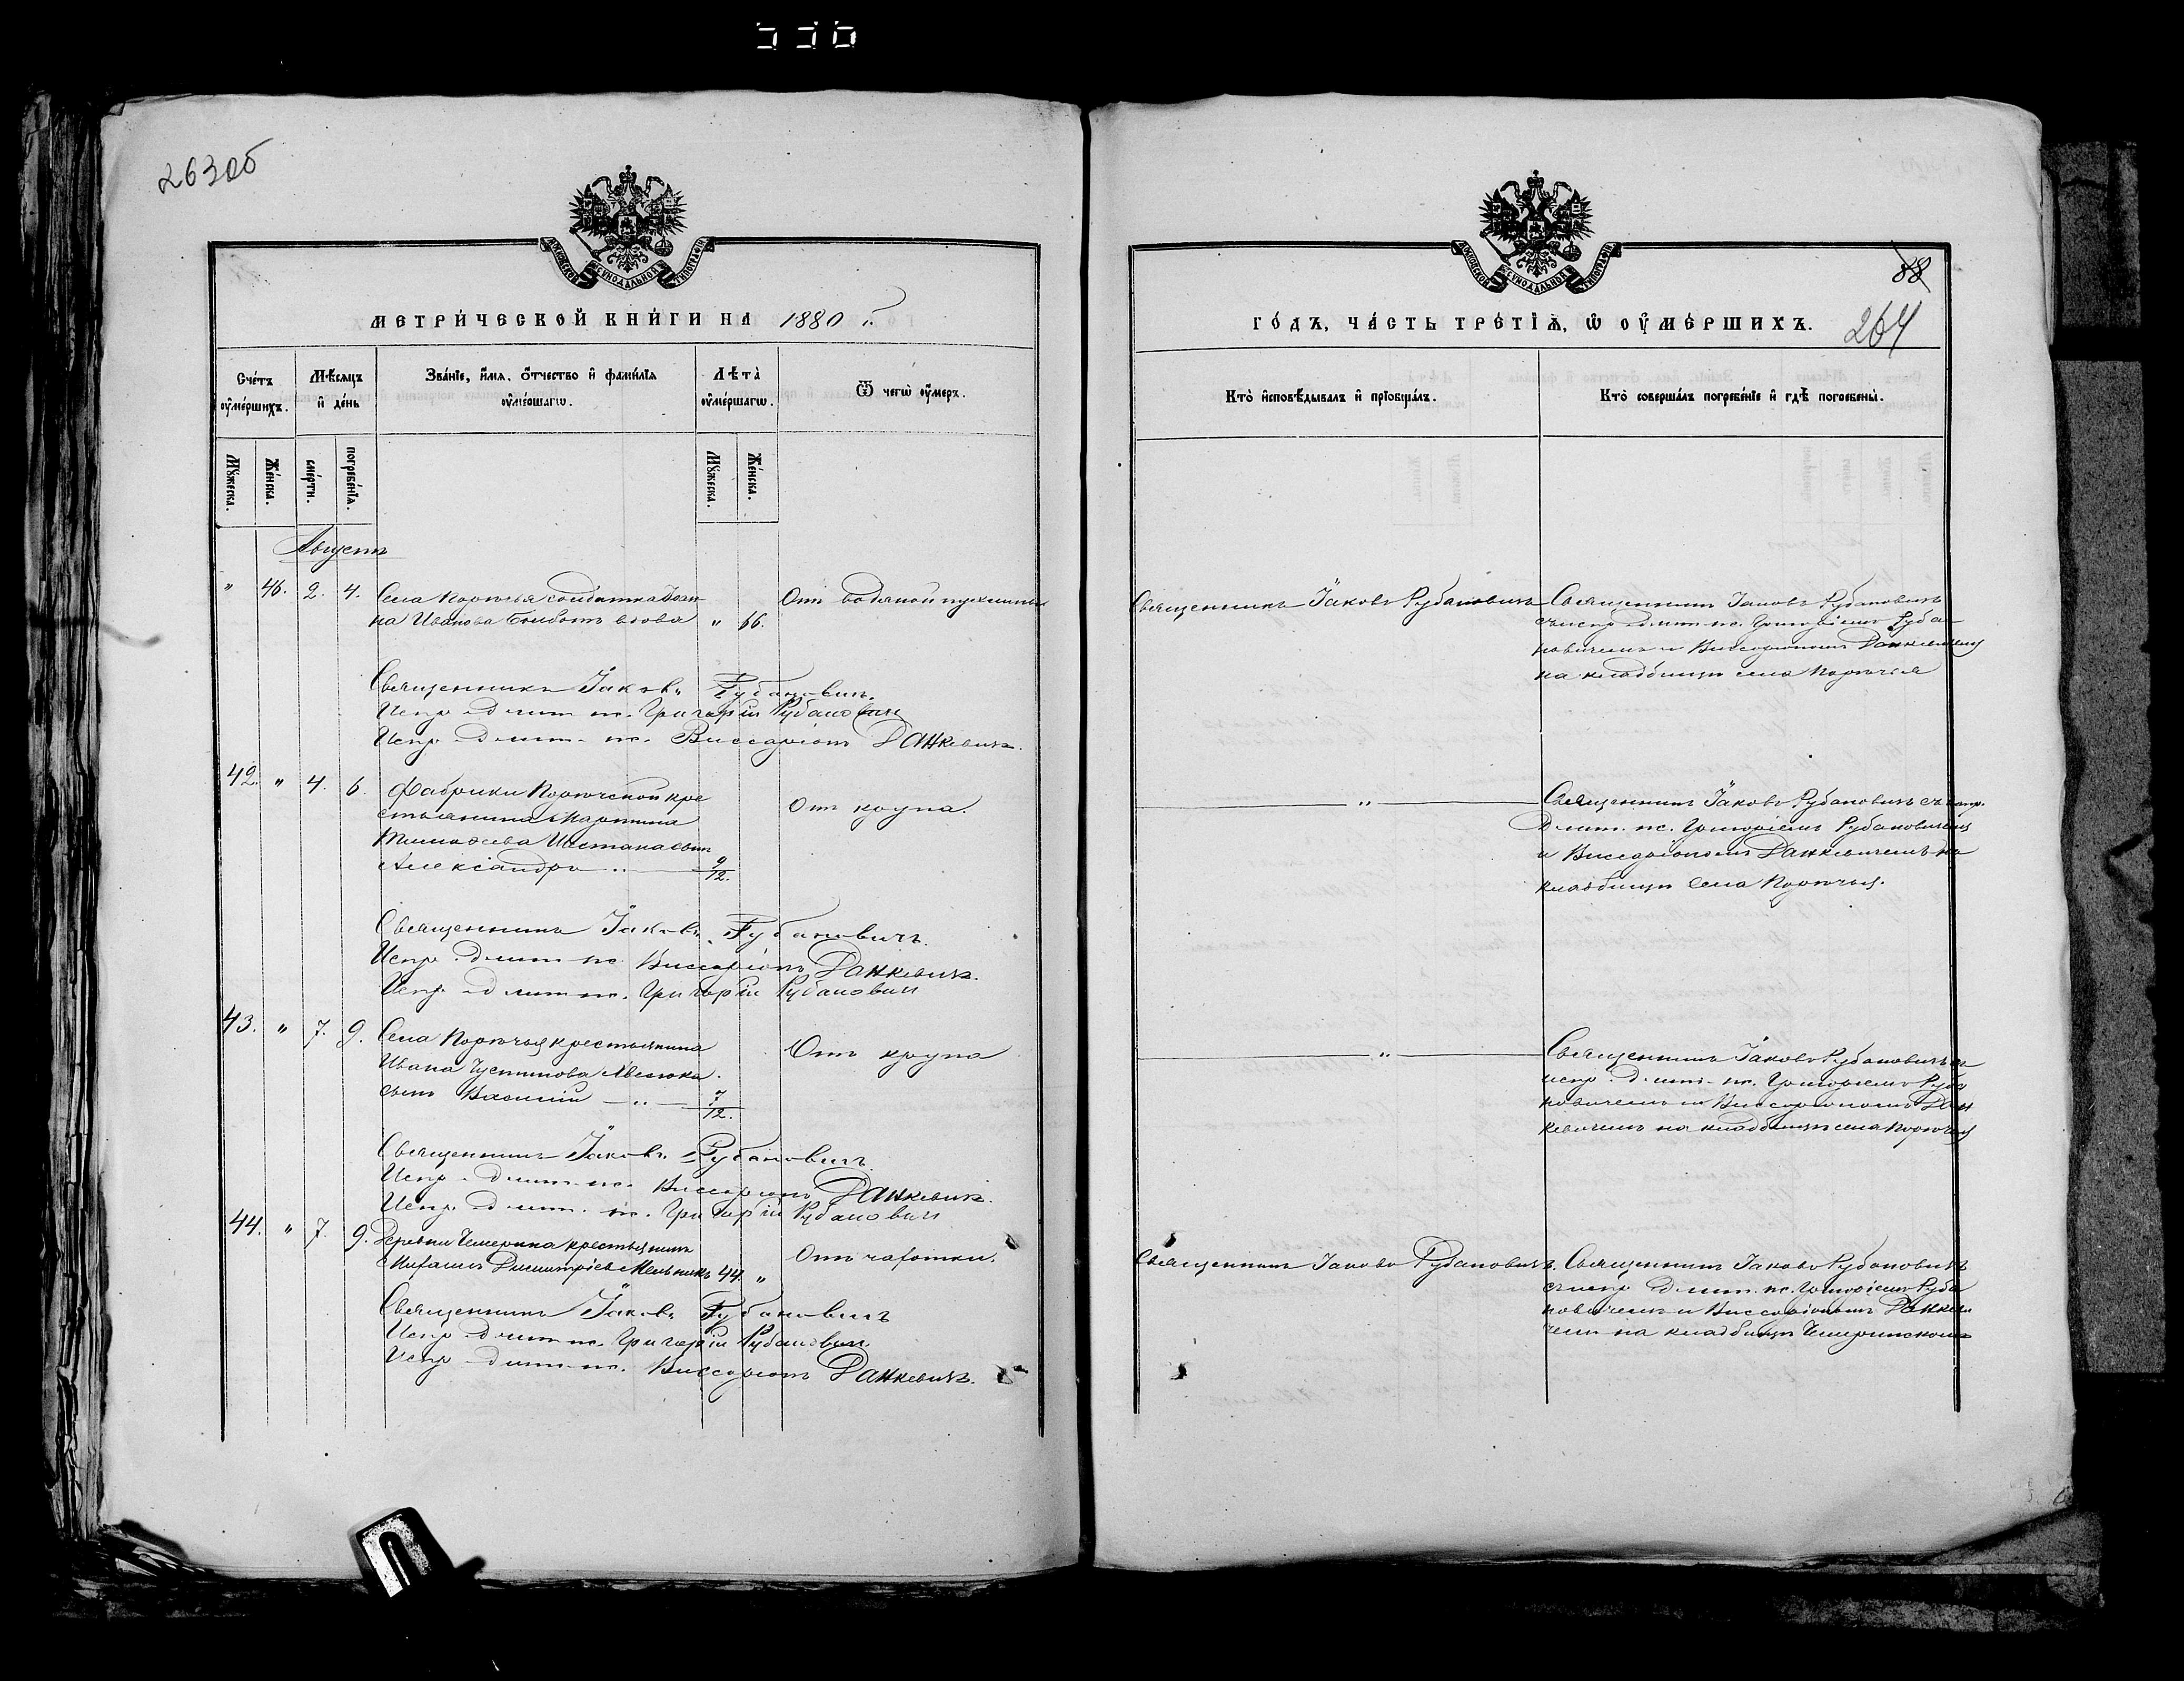 263об
МОСКОВСКОЙ СѴНОДАЛЬНОЙ ТИПОГРАФІИ
МЕТРИ́ЧЕСКОЙ КНИ́ГИ НА 1880 г.
Сче́тъ ᲂу҆ме́ршихъ.
Мѣ́сяцъ и҆ де́нь
Зва́нїе, и҆́мя, ѻ҆́тчество и҆ фамі́лїя ᲂу҆ме́ршагѡ.
Лѣта̀ ᲂу҆ме́ршагѡ.
Ѿ чегѡ̀ ᲂу҆́меръ.
Мꙋ́жеска.
Же́нска.
сме́рти.
погребе́нїѧ.
Мꙋ́жеска.
Же́нска.
Августъ
" 46. 2. 4. Села Порѣчья солдатка Іоан
на Иванова вдова " 66.
Отъ водяной
Священникъ Іаковъ Рубановичъ
Испр. д. пс. Григорій Рубановичъ
Испр. д. пс. Виссаріонъ Данкевичъ.
42. " 4. 6. Фабрики Порѣчской кре
стьянина Мартина
Тимофеева сынъ
Александръ " 9/12.
Отъ крупа.
Священникъ Іаковъ Рубановичъ.
Испр. д. пс. Виссаріонъ Данкевичъ.
Испр. д. пс. Григорій Рубановичъ
43. " 7. 9. Села Порѣчья крестьянина
Ивана Іустинова
сынъ Василій " 7/12.
Отъ крупа
Священникъ Іаковъ Рубановичъ.
Испр. д. пс. Виссаріонъ Данкевичъ.
Испр. д. пс. Григорій Рубановичъ
44. " 7. 9. Деревни Чемерина крестьянинъ
Михаилъ Димитріевъ Мельникъ 44 "
Отъ чахотки.
Священникъ Іаковъ Рубановичъ
Испр. д. пс. Григорій Рубановичъ
Испр. д. пс. Виссаріонъ Данкевичъ.
МОСКОВСКОЙ СѴНОДАЛЬНОЙ ТИПОГРАФІИ
88
ГО́ДЪ, ЧА́СТЬ ТРЕ́ТЇѦ, Ѡ҆ ОУ҆МЕ́РШИХЪ. 264
Кто̀ и҆сповѣ́дывалъ и҆ прїобща́лъ.
Кто̀ соверша́лъ погребе́нїе и҆ гдѣ̀ погребены̀.
Священникъ Іаковъ Рубановичъ
Священникъ Іаковъ Рубановичъ
съ испр. д. пс. Григоріемъ Руба
новичемъ и Виссаріономъ Данкевичемъ
на кладбищѣ села Порѣчья
"
Священникъ Іаковъ Рубановичъ съ испр.
д. пс. Григоріемъ Рубановичемъ
и Виссаріономъ Данкевичемъ на
кладбищѣ села Порѣчья.
"
Священникъ Іаковъ Рубановичъ съ
испр. д. пс. Григоріемъ Руба
новичемъ и Виссаріономъ Дан
кевичемъ на кладбищѣ села Порѣчья
Священникъ Іаковъ Рубановичъ.
Священникъ Іаковъ Рубановичъ
съ испр. д. пс. Григоріемъ Руба
новичемъ и Виссаріономъ Данкеви
чемъ на кладбищѣ Чемеринскомъ